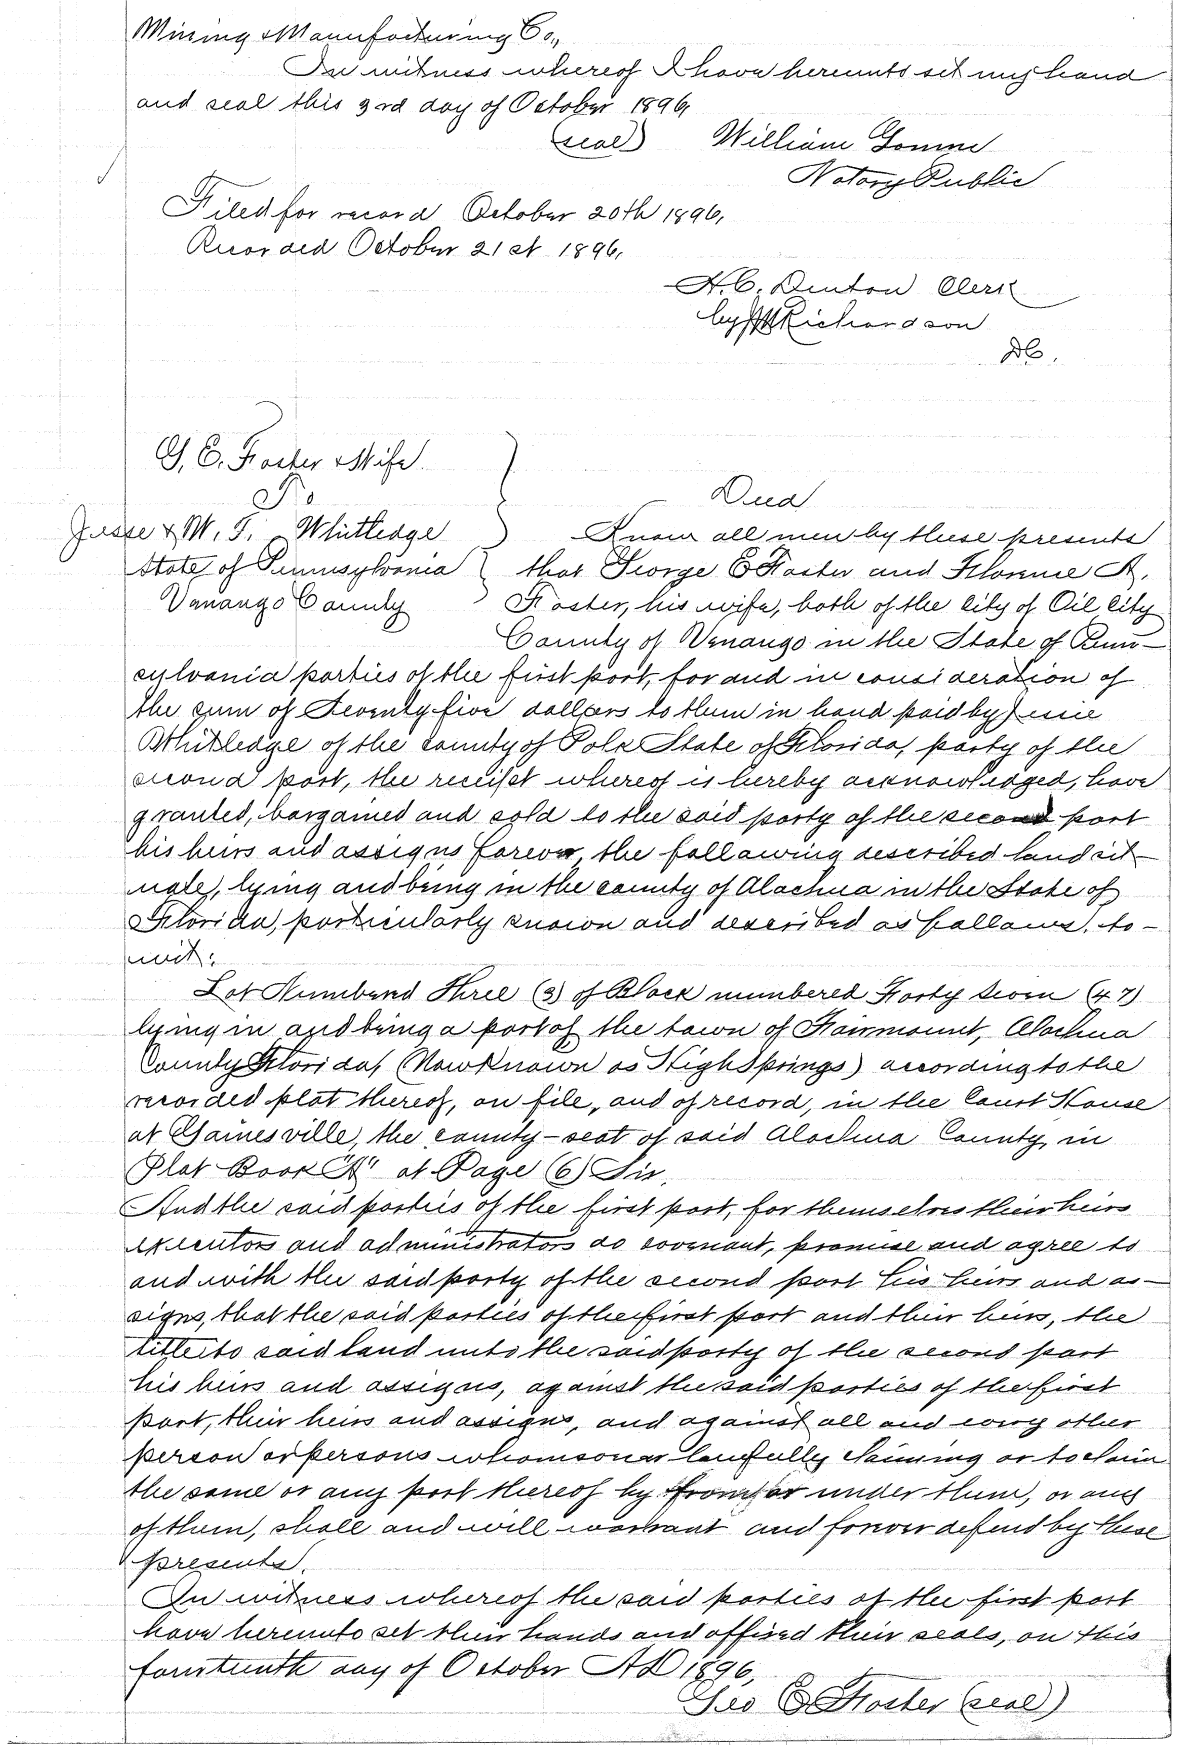 Mining & Manufacturing Co.,
In witness whereof I have hereunto set my hand
and seal this 3rd day of October 1896,
(seal) William
Notary Public
Filed for record October 20th 1896,
Recorded October 21st 1896,
H.C. Denton Clerk
by Richardson
DC.
G. E. Foster & Wife
To
Jesse & W. T. Whitledge
State of Pennsylvania
Venango County
Deed
Know all men by these presents
that George E Foster and Florence A.
Foster, his wife, both of the City of Oil City
County of Venango in the State of Penn-
sylvania parties of the first part, for and in consideration of
the sum of Seventy five dollars to them in hand paid by Jessie
Whitledge of the County of Polk State of Florida, party of the
second part, the receipt whereof is hereby acknowledged, have
granted, bargained and sold to the said party of the second part
his heirs and assigns forever, the following described land sit-
uate, lying and being in the county of Alachua in the State of
Florida, particularly known and described as follows, to-
wit:
Lot Numbered Three (3) of Block numbered Forty Seven (47)
lying in and being a part of the town of Fairmount, Alachua
County Florida, (Now Known as High Springs) according to the
recorded plat thereof, on file, and of record, in the Court House
at Gainesville, the county-seat of said Alachua County, in
Plat Book "A" at Page (6) Six.
And the said parties of the first part, for themselves their heirs
executors and administrators do covenant, promise and agree to
and with the said party of the second part his heirs and as-
signs, that the said parties of the first part and their heirs, the
title to said land unto the said party of the second part
his heirs and assigns, against the said parties of the first
part, their heirs and assigns, and against all and every other
person or persons whomsoever lawfully claiming or to claim
the same or any part thereof by from or under them, or any
of them, shall and will warrant and forever defend by these
presents.
In witness whereof the said parties of the first part
have hereunto set their hands and affixed their seals, on this
fourteenth day of October AD 1896,
Geo E Foster (seal)